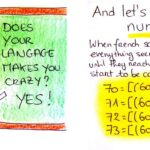 DOES
YOUR
LANGAGE
MAKES YOU
CRAZY?
YES!
And let's
num
When french sc
everything see
until they reach
start to be co
70 = [(60
71 = [(60
72 = [(60
73 = [(60